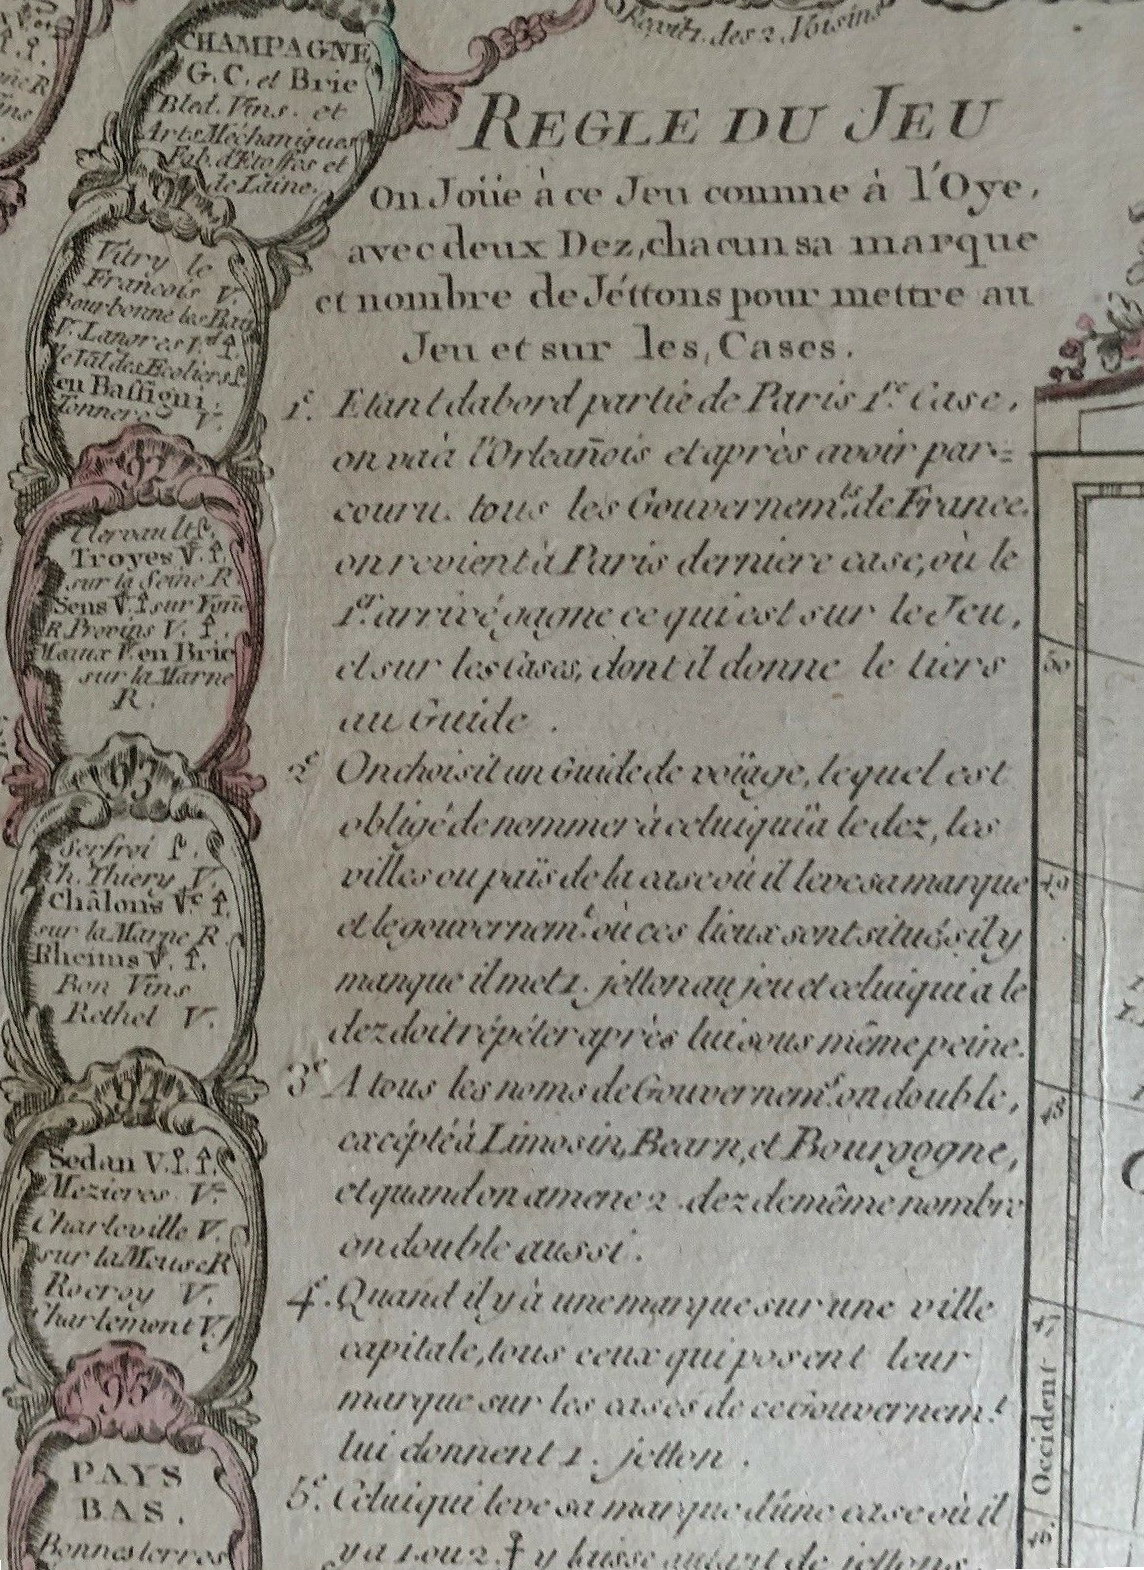 Repit 1. des 2 Voisins
CHAMPAGNE
G. C. et Brie
Bled. Vins. et
Arts Méchaniques
Fab. d'Etoffes et
de Laine.
Vitry le
François V.
Bourbonne les Bain
V. Langres V.
le Val des Ecoliers
en Bassigni.
Tonnere V.
92
Clervault
Troyes V.
sur la Seine R
Sens V. sur Yone
R. Provins V.
Meaux V. en Brie
sur la Marne
R.
93
Serfroi
Ch. Thiery V.
Châlons V.
sur la Marne R
Rheims V.
Bon Vins
Rethel V.
94
Sedan V.
Mezieres V.
Charleville V.
sur la Meuse R
Rocroy V.
Charlemont V.
95
PAYS
BAS.
Bonnes terres
REGLE DU JEU
On Joüe à ce Jeu comme à l'Oye,
avec deux Dez, chacun sa marque
et nombre de Jéttons pour mettre au
Jeu et sur les, Cases.
1.e Etant dabord partie de Paris 1.re Case,
on va à l'Orleañois et après avoir par=
couru. tous les Gouvernem.ts de France.
on revient à Paris derniere case, où le
1.er arrivé gagne ce qui est sur le Jeu,
et sur les Cases, dont il donne le tiers
au Guide.
2.e On choisit un Guide de voïage, lequel est
obligé de nommer à celui qui ä le dez, les
villes ou païs de la case où il leve sa marque
et le gouvernem.t où ces lieux sont situés s'il y
manque il met 1. jetton au jeu et celui qui a le
dez doit répéter après lui sous même peine.
3.e A tous les noms de Gouvernem.s on double,
excépté à Limosin, Bearn, et Bourgogne,
et quand on amene 2. dez de même nombre
on double aussi.
4.e Quand il y à une marque sur une ville
capitale, tous ceux qui posent leur
marque sur les cases de ce Gouvernem.t
lui donnent 1. jetton.
5.e Celui qui leve sa marque d'une case où il
y a 1. ou 2. y laisse autant de jettons.
50
49
48
47
Occident